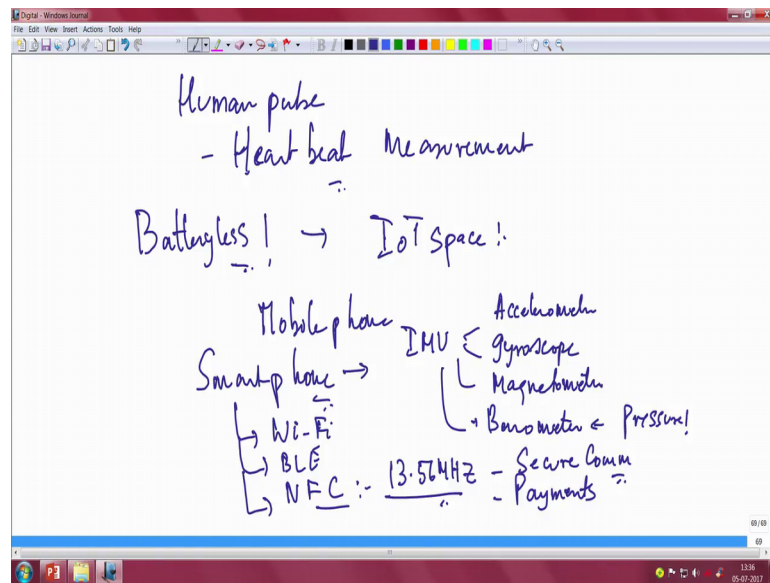 Digital - Windows Journal
File Edit View Insert Actions Tools Help
Human pulse
- Heart beat Measurement
Batteryless ! → IoT space !.
Mobile phone
Smartphone → IMU
Accelerometer
Gyroscope
Magnetometer
Barometer ← Pressure!
→ Wi-Fi
→ BLE
→ NFC :- 13.56MHZ - Secure Comm
- Payments
69/69
69
13:36
05-07-2017